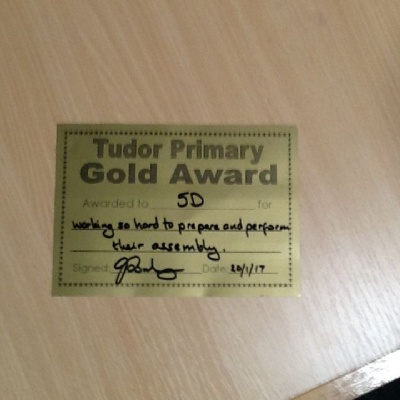 Tudor Primary
Gold Award
Awarded to 5D for
working so hard to prepare and perform
their assembly.
Signed: Date: 20/1/17